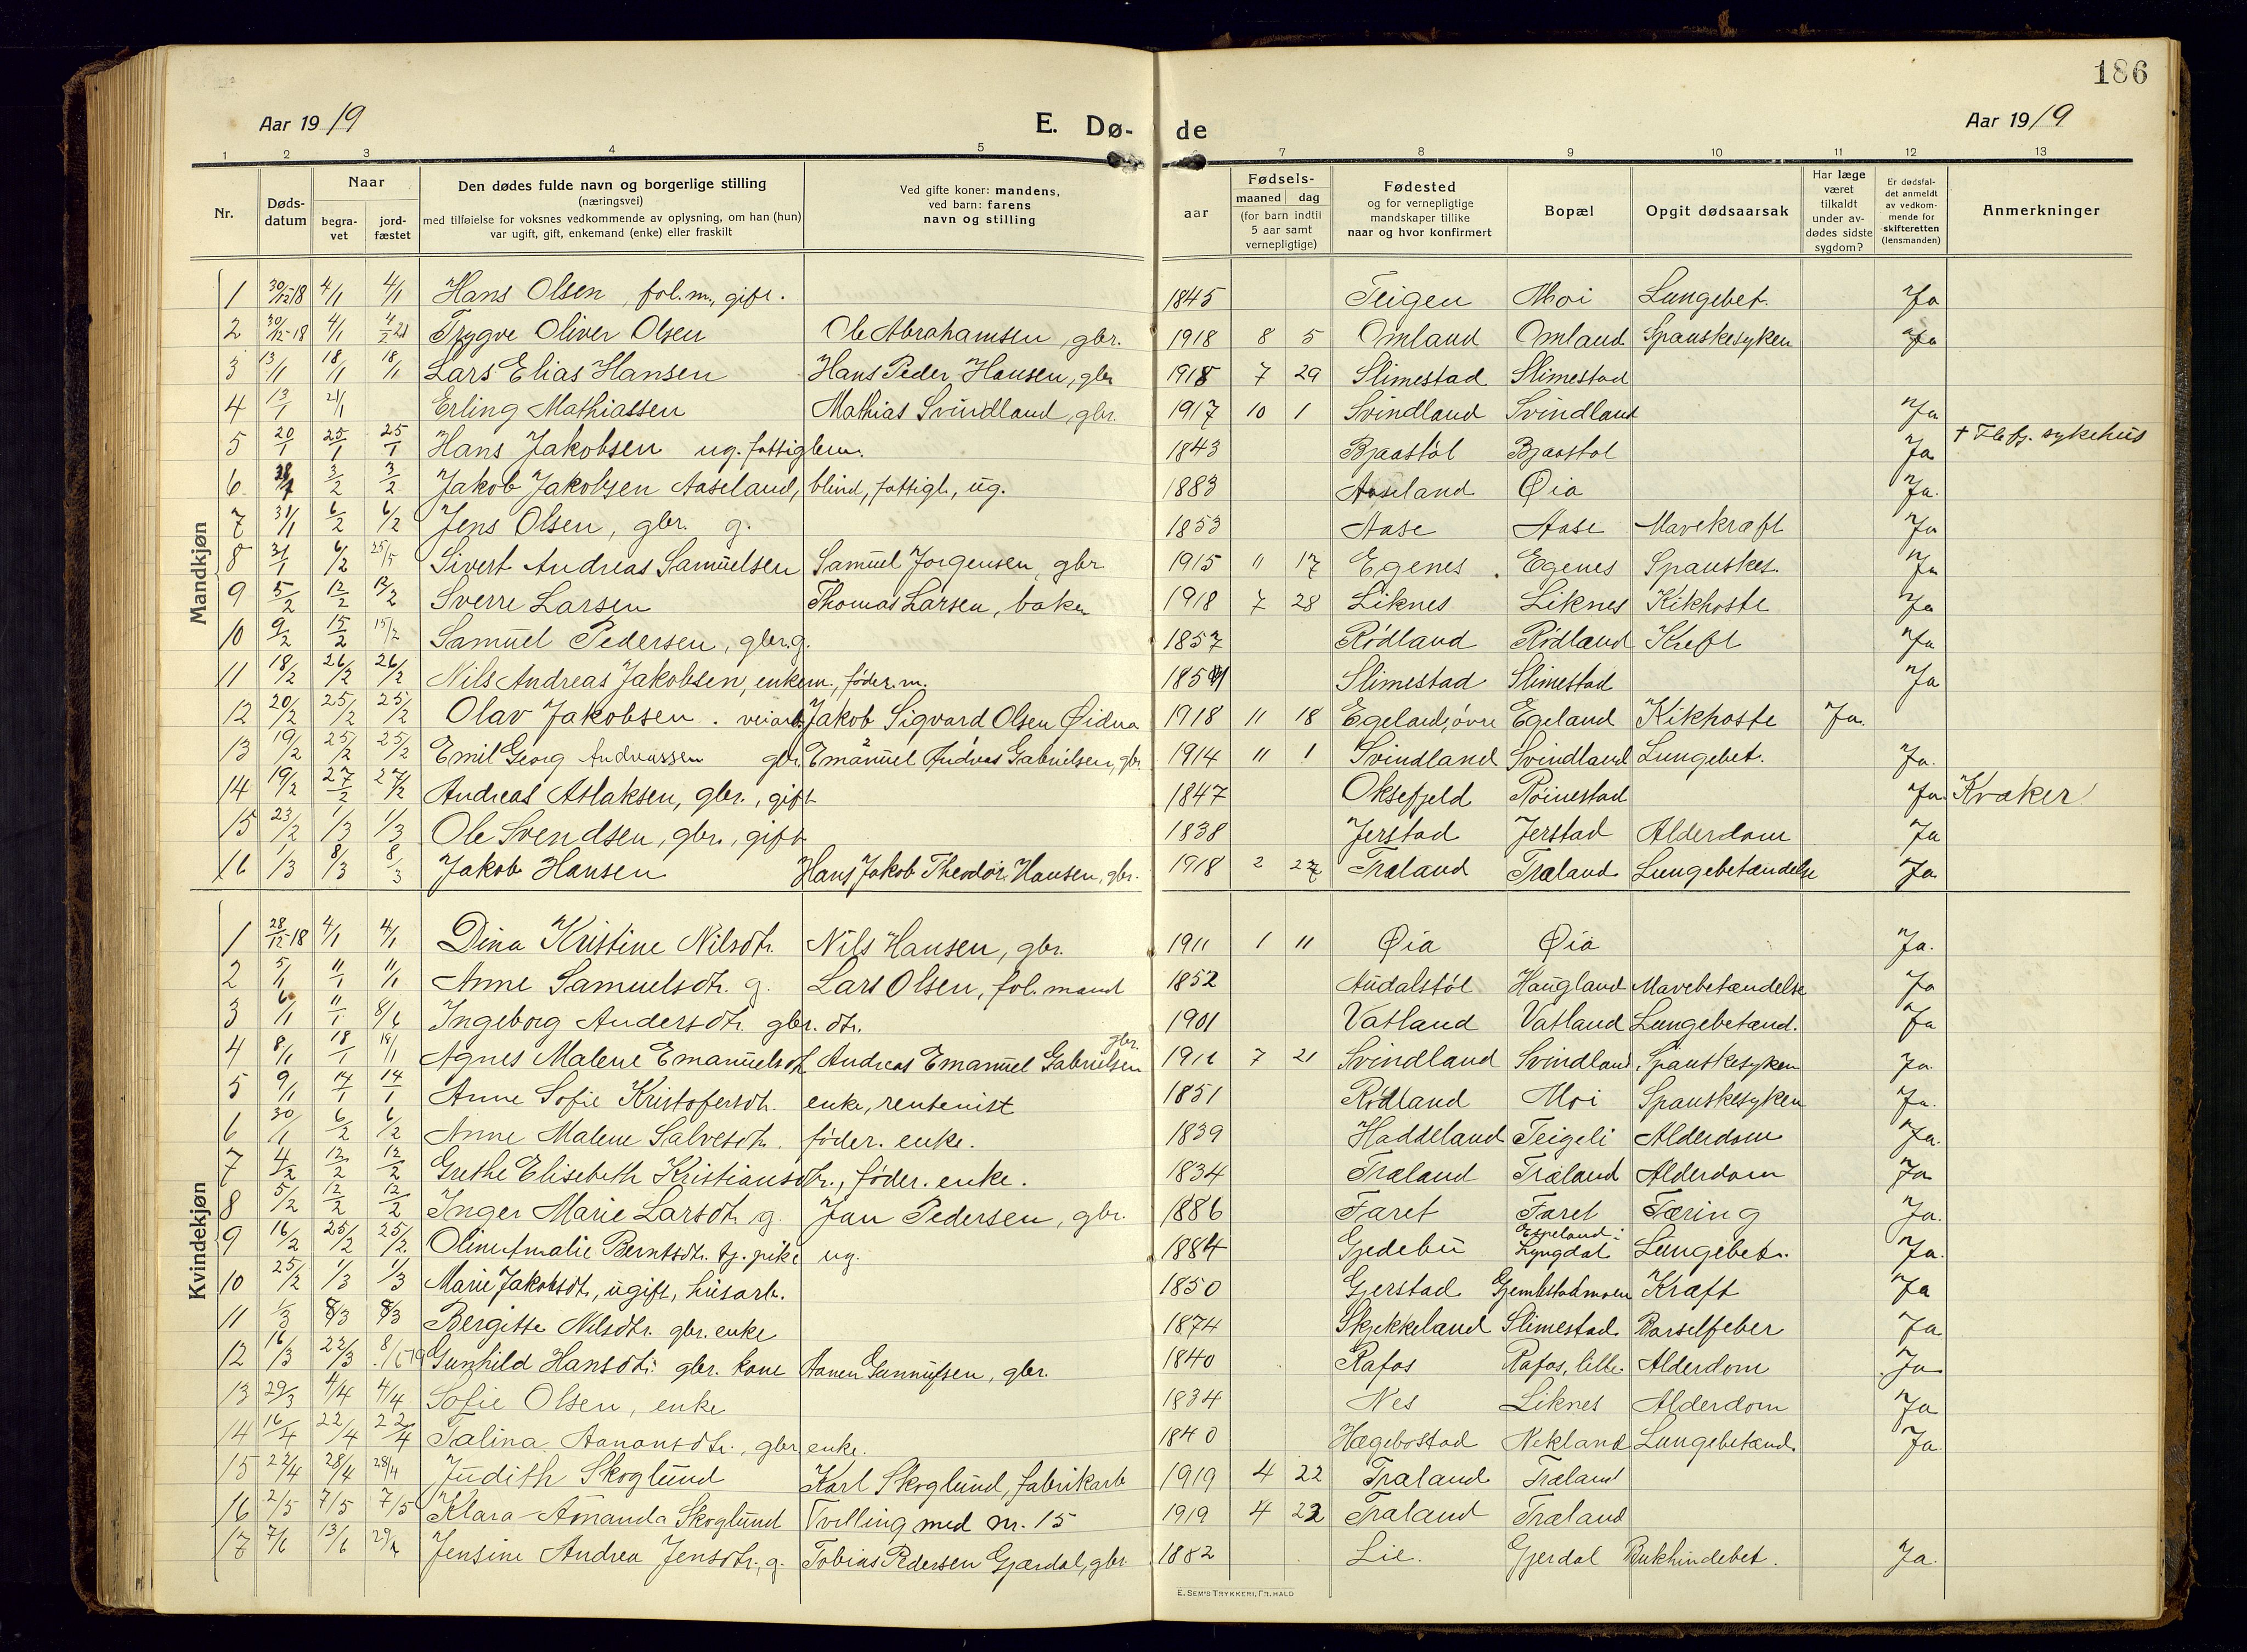 186
Aar 1919 E. Dø- de Aar 1919
1 2 3 4 5 7 8 9 10 11 12 13
Nr. Døds-datum Naar begra-vet jord-fæstet Den dødes fulde navn og borgerlige stilling (næringsvei) med tilføielse for voksnes vedkommende av oplysning, om han (hun) var ugift, gift, enkemand (enke) eller fraskilt Ved gifte koner: mandens, ved barn: farens navn og stilling aar Fødsels- maaned dag (for barn indtil 5 aar samt vernepligtige) Fødested og for vernepligtige mandskaper tillike naar og hvor konfirmert Bopæl Opgit dødsaarsak Har læge været tilkaldt under av-dødes sidste sygdom? Er dødsfal-det anmeldt av vedkom-mende for skifteretten (lensmanden) Anmerkninger
Mandkjøn
1 30/12-18 4/1 4/1 Hans Olsen, fol.m., gift. 1845 Teigen Moi Lungebet. Ja
2 30/12-18 4/1 4/2 21 Trygve Oliver Olsen Ole Abrahamsen, gbr. 1918 8 5 Omland Omland Spanskesyken Ja
3 13/1 18/1 18/1 Lars Elias Hansen Hans Peder Hansen, gbr 1918 7 29 Slimestad Slimestad
4 13/1 21/1 Erling Mathiassen Mathias Svindland, gbr. 1917 10 1 Svindland Svindland Ja
5 20/1 25/1 25/1 Hans Jakobsen ug. fattiglem. 1843 Bjaastøl Bjaastøl Ja † Flefj. sykehus
6 28/1 3/2 3/2 Jakob Jakobsen Aaseland, blind, fattigl., ug. 1883 Aaseland Øia Ja.
7 31/1 6/2 6/2 Jens Olsen, gbr. g. 1853 Aase Aase Mavekræft Ja
8 31/1 6/2 25/5 Sivert Andreas Samuelsen Samuel Jørgensen, gbr 1915 11 17 Egenes Egenes Spanskes. Ja
9 5/2 12/2 12/2 Sverre Larsen Thomas Larsen, baker 1918 7 28 Liknes Liknes Kikhoste Ja
10 9/2 15/2 15/2 Samuel Pedersen, gbr. g. 1857 Rødland Rødland Kræft Ja
11 18/2 26/2 26/2 Nils Andreas Jakobsen, enkem., føder.m. Slimestad Slimestad Ja
12 20/2 25/2 25/2 Olav Jakobsen. veiarb. Jakob Sigvard Olsen Øidna 1918 11 18 Egeland, øvre Egeland Kikhoste Ja.
13 19/2 25/2 25/2 Emil Georg Andreassen gbr. Emanuel Andreas Gabrielsen, gbr. 1914 11 1 Svindland Svindland Lungebet. Ja.
14 19/2 27/2 27/2 Andreas Aslaksen, gbr., gift 1847 Oksefjeld Røinestad Ja. Kvæker
15 23/2 1/3 1/3 Ole Svendsen, gbr., gift 1838 Jerstad Jerstad Alderdom Ja
16 1/3 8/3 8/3 Jakob Hansen Hans Jakob Theodor Hansen, gbr. 1918 2 27 Træland Træland Lungebetændelse Ja
Kvindekjøn
1 28/12-18 4/1 4/1 Dina Kristine Nilsdtr. Nils Hansen, gbr. 1911 1 11 Øia Øia Ja.
2 5/1 11/1 11/1 Anne Samuelsdtr. g. Lars Olsen, fol. mand 1852 Audalstøl Haugland Mavebetændelse Ja
3 6/1 11/1 8/6 Ingeborg Andersdtr. gbr. dtr. 1901 Vatland Vatland Lungebetænd. Ja
4 8/1 18/1 18/1 Agnes Malene Emanuelsdtr. Andreas Emanuel Gabrielsen gbr. 1916 7 21 Svindland Svindland Spanskesyken Ja
5 9/1 14/1 14/1 Anne Sofie Kristofersdtr. enke, rentenist 1851 Rødland Moi Spanskesyken Ja.
6 30/1 6/2 6/2 Anne Malene Salvesdtr. føder. enke. 1839 Haddeland Teigeli Alderdom Ja.
7 4/2 12/2 12/2 Grethe Elisebeth Kristiansdtr., føder. enke. 1834 Træland Træland Alderdom Ja
8 5/2 12/2 12/2 Inger Marie Larsdtr. g. Jan Pedersen, gbr. 1886 Faret Faret Tæring Ja.
9 16/2 25/2 25/2 Oline Amalie Berntsdtr. tj. pike ug. 1884 Gjedebu Espeland i Lyngdal Lungebet. Ja.
10 25/2 1/3 1/3 Marie Jakobsdtr., ugift, husarb. 1850 Gjerstad Gjemlestadmoen Kræft Ja
11 1/3 8/3 8/3 Bergitte Nilsdtr. gbr. enke 1874 Skjekkeland Slimestad Barselfeber Ja
12 16/3 22/3 8/6 19 Gunhild Hansdtr. gbr. kone Aanen Gunnufsen, gbr. 1840 Rafos Rafos, lille Alderdom Ja
13 29/3 4/4 4/4 Sofie Olsen, enke 1834 Nes Liknes Alderdom Ja
14 16/4 22/4 22/4 Talina Aanonsdtr., gbr enke. 1840 Hægebostad Nekland Lungebetænd. Ja
15 22/4 28/4 28/4 Judith Skoglund Karl Skoglund, fabrikarb 1919 4 22 Træland Træland
16 2/5 7/5 7/5 Klara Amanda Skoglund Tvilling med nr. 15 1919 4 22 Træland Træland
17 7/6 13/6 Jensine Andrea Jensdtr., g. Tobias Pedersen Gjærdal, gbr 1882 Lie. Gjerdal Bukhindebet. Ja.
E. SEM'S TRYKKERI, FR. HALD